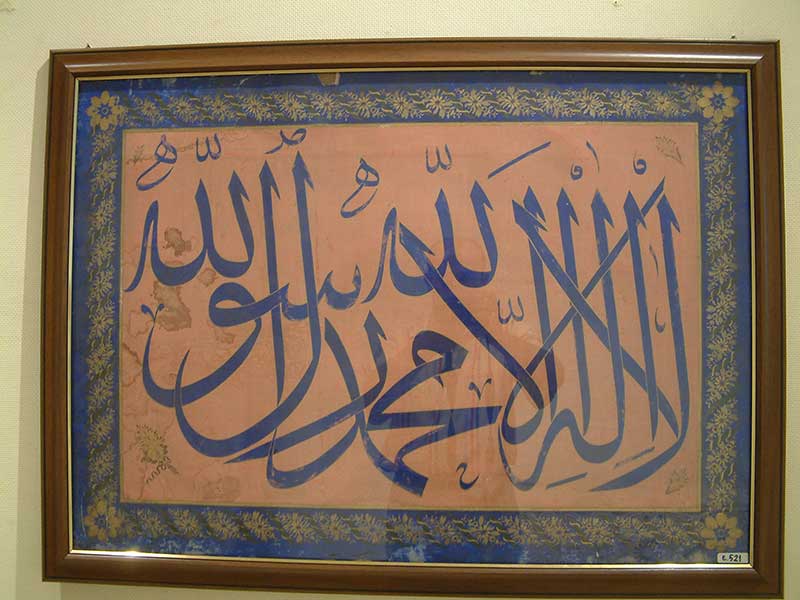 لا إله إلا الله محمد رسول الله
E.521